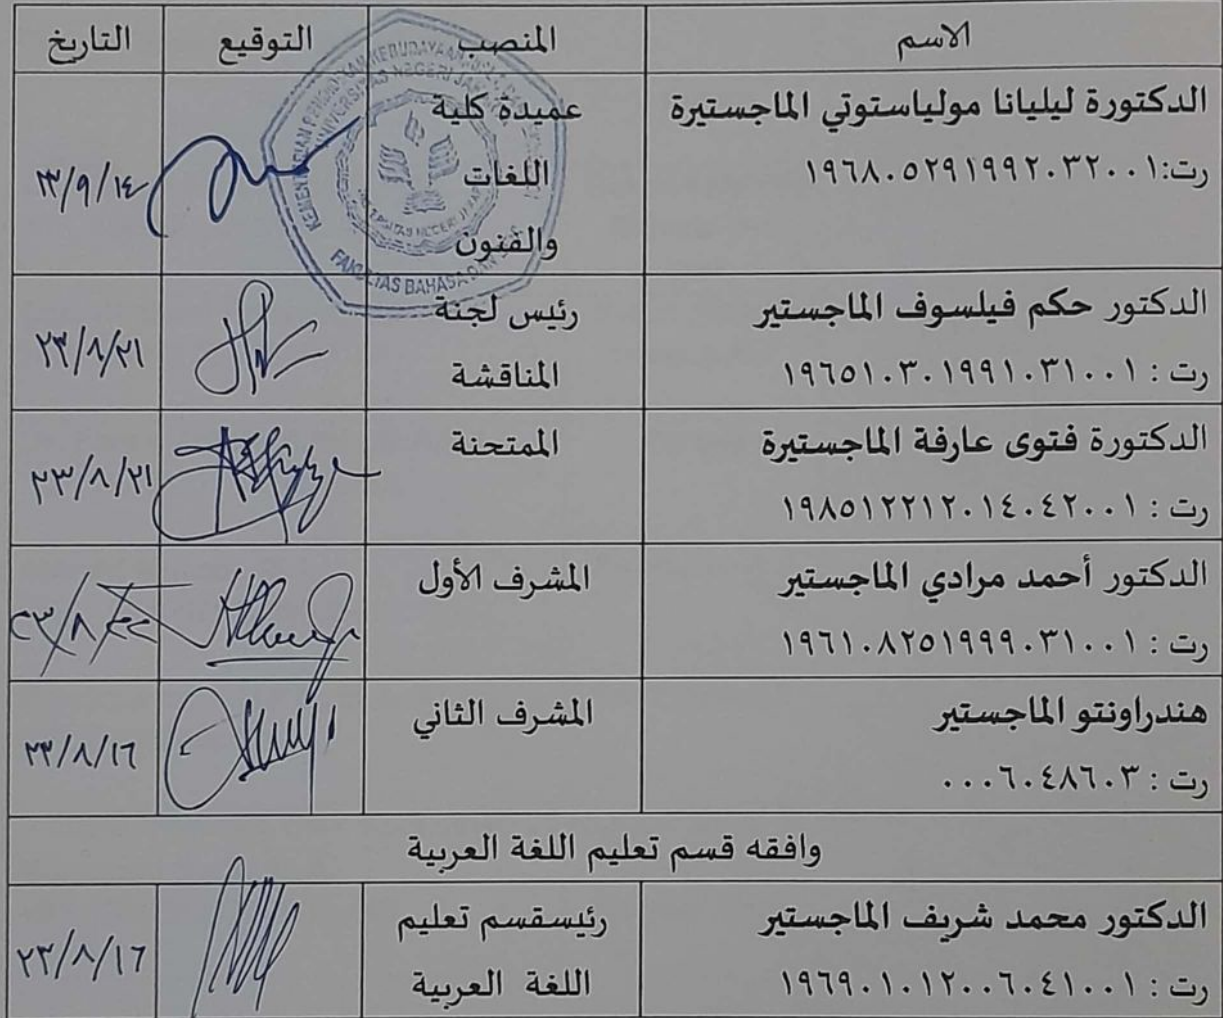 الاسم المنصب التوقيع التاريخ
الدكتورة ليليانا مولياستوتي الماجستيرة
رت:١٩٦٨٠٥٢٩١٩٩٢٠٣٢٠٠١
عميدة كلية
اللغات
والفنون
٢٣/٩/١٤
الدكتور حكم فيلسوف الماجستير
رت : ١٩٦٥١٠٣٠١٩٩١٠٣١٠٠١
رئيس لجنة
المناقشة
٢٣/٨/٢١
الدكتورة فتوى عارفة الماجستيرة
رت : ١٩٨٥١٢٢١٢٠١٤٠٤٢٠٠١
الممتحنة
٢٣/٨/٢١
الدكتور أحمد مرادي الماجستير
رت : ١٩٦١٠٨٢٥١٩٩٩٠٣١٠٠١
المشرف الأول
هندراونتو الماجستير
رت : ٠٠٠٦٠٤٨٦٠٣
المشرف الثاني
٢٣/٨/١٦
وافقه قسم تعليم اللغة العربية
الدكتور محمد شريف الماجستير
رت : ١٩٦٩٠١٠١٢٠٠٦٠٤١٠٠١
رئيسقسم تعليم
اللغة العربية
٢٣/٨/١٦
UNIVERSITAS NEGERI
FAKULTAS BAHASA DAN